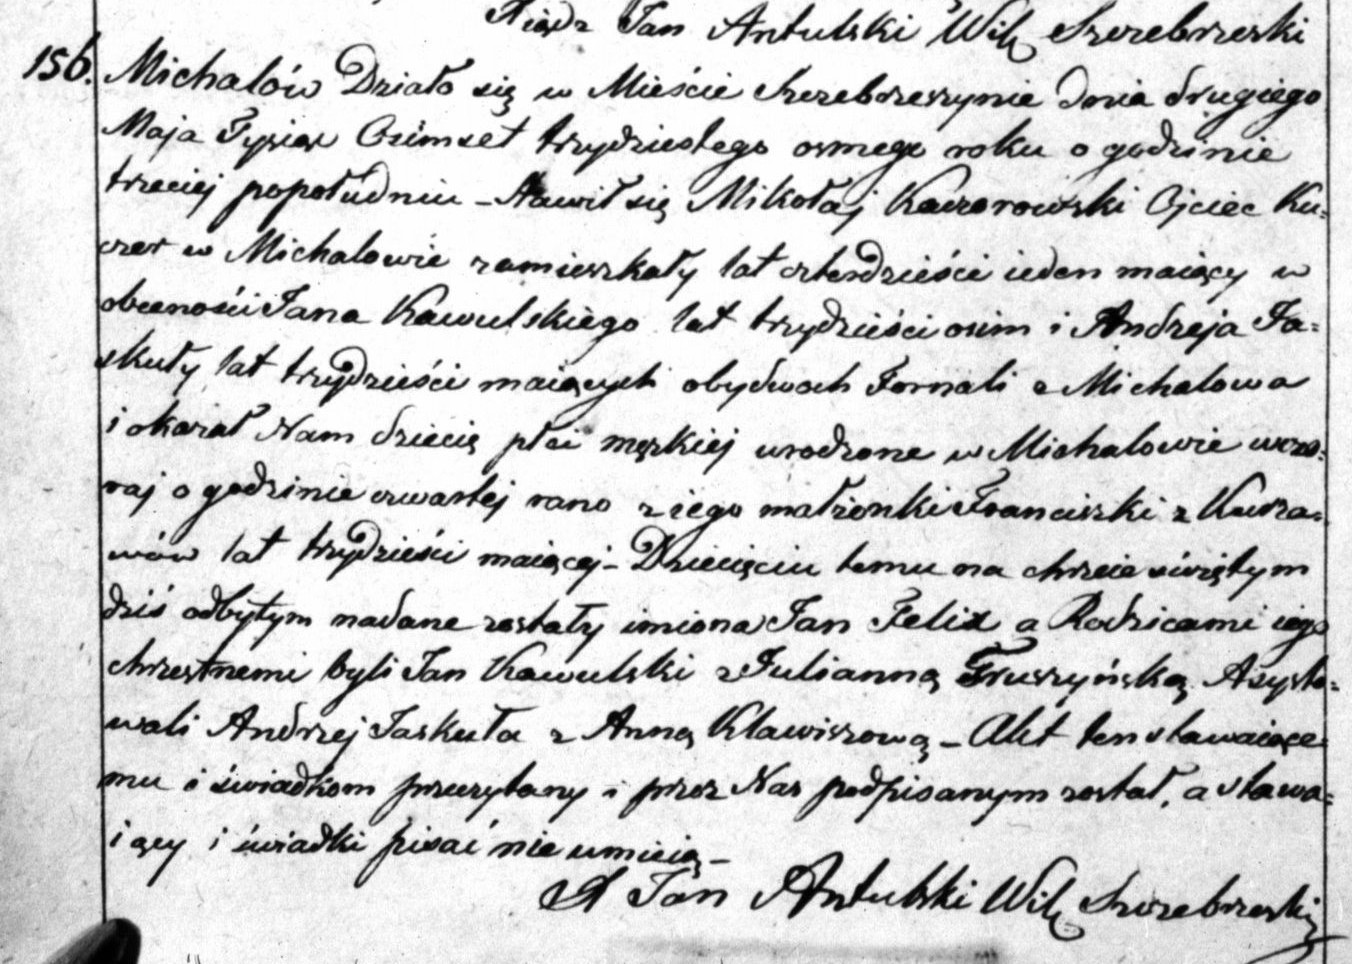 Xiądz Jan Antulski Wik Szczebrzeski
156. Michalów Działo się w Mieście Szczebrzeszynie dnia drugiego
Maja Tysiąc Ośmset trzydziestego osmego roku o godzinie
trzeciej popołudniu – Stawił się Mikołaj Kaczorowski Ojciec Ku=
czer w Michalowie zamieszkały lat czterdzieści ieden maiący w
obecności Jana Kawulskiego lat trzydzieści osim i Andrzeja Ja=
skuły lat trzydzieści maiących obydwoch Fornali z Michalowa
i okazał Nam dziecię płci męzkiej urodzone w Michalowie wczo=
raj o godzinie czwartej rano z iego małżonki Franciszki z
wów lat trzydzieści maiącej – Dziecięciu temu na chrzcie świętym
dziś odbytym nadane zostały imiona Jan Felix a Rodzicami iego
chrzestnemi byli Jan Kawulski z Julianną Truszyńską Asysto=
wali Andrzej Jaskuła z Anną Klawiszową – Akt ten stawaiące
mu i świadkom przeczytany i przez Nas podpisanym został, a stawa=
iący i świadki pisać nie umieią –
X Jan Antulski Wik Szczebrzeski